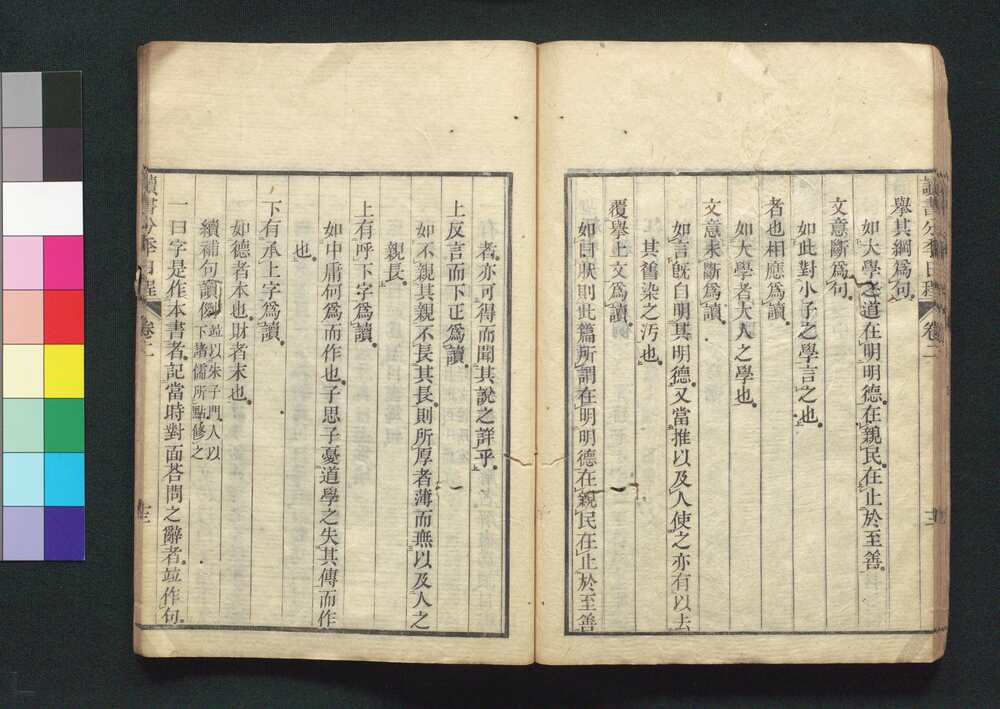 讀書分年日程 卷二
舉其綱爲句
如大學之道在明明德在親民在止於至善
文意斷爲句
如此對小子之學言之也
者也相應爲讀
如大學者大人之學也
文意未斷爲讀
如言旣自明其明德又當推以及人使之亦有以去
其舊染之汚也
覆舉上文爲讀
如曰然則此篇所謂在明明德在親民在止於至善
者亦可得而聞其說之詳乎
上反言而下正爲讀
如不親其親不長其長則所厚者薄而無以及人之
親長
上有呼下字爲讀
如中庸何爲而作也子思子憂道學之失其傳而作
也
下有承上字爲讀
如德者本也財者末也
續補句讀例 竝以朱子門人以
下諸儒所點修之
一曰字是作本書者記當時對面荅問之辭者竝作句
讀書分年日程 卷二